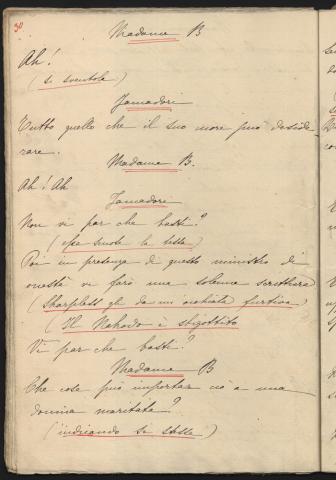 30
Madame B
Ah!
(si sventola)
Jamadori
Tutto quello che il suo cuore può deside-
rare.
Madame B.
Ah! Ah
Jamadori
Non vi par che basti?
(essa scuote la testa)
Poi in presenza di questo ministro di
onestà vi farò una solenne scrittura
(Sharpless gli da un' occhiata furtiva)
(Il Nakodo è sbigottito
Vi par che basti?
Madame B
Che cosa può importar ciò a una
donna maritata?
(indicando se stessa)